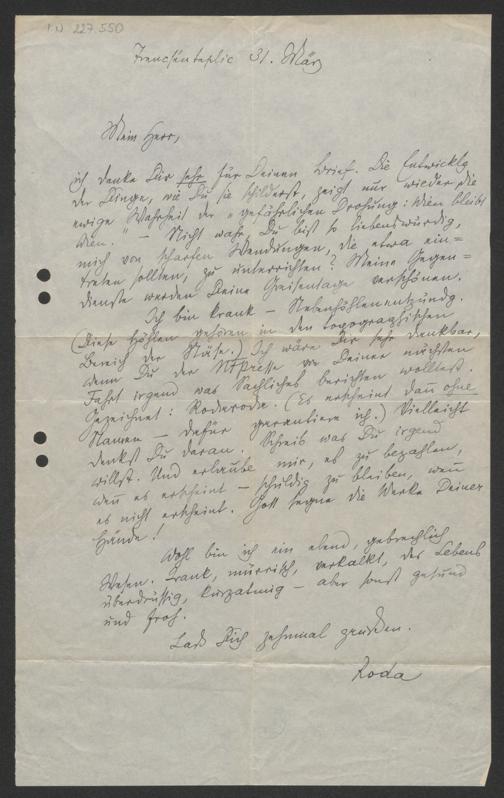 I.N. 227.550
Trencsénteplic 31. März
Mein Herr,
ich danke Dir sehr für Deinen Brief. Die Entwicklg
der Dinge, wie Du sie schilderst, zeigt nur wieder die
ewige Wahrheit der "gefährlichen Drohung: Wien bleibt
Wien." – Nicht wahr, Du bist so liebenswürdig,
mich von scharfen Wendungen, die etwa ein=
treten sollten, zu unterrichten? Meine Gegen=
dienste werden Deine Greisentage verschönen.
Ich bin krank – Nebenhöhlenentzündg.
(Diese Höhlen gehören in den topographischen
Bereich der Nase.) Ich wäre Dir sehr dankbar,
wenn Du der NFPresse von Deiner nächsten
Fahrt irgend was Sachliches berichten wolltest.
Gezeichnet: Rodaroda. (Es erscheint dann ohne
Namen – dafür garantiere ich.) Vielleicht
denkst Du daran. Schreib was Du irgend
willst. Und erlaube mir, es zu bezahlen,
wenn es erscheint – schuldig zu bleiben, wenn
es nicht erscheint. Gott segne die Werke Deiner
Hände!
Wohl bin ich ein elend, gebrechlich
Wesen. Krank, mürrisch, verkalkt, des Lebens
überdrüssig, kurzatmig – aber sonst gesund
und froh.
Lass Dich zehnmal grüßen.
Roda